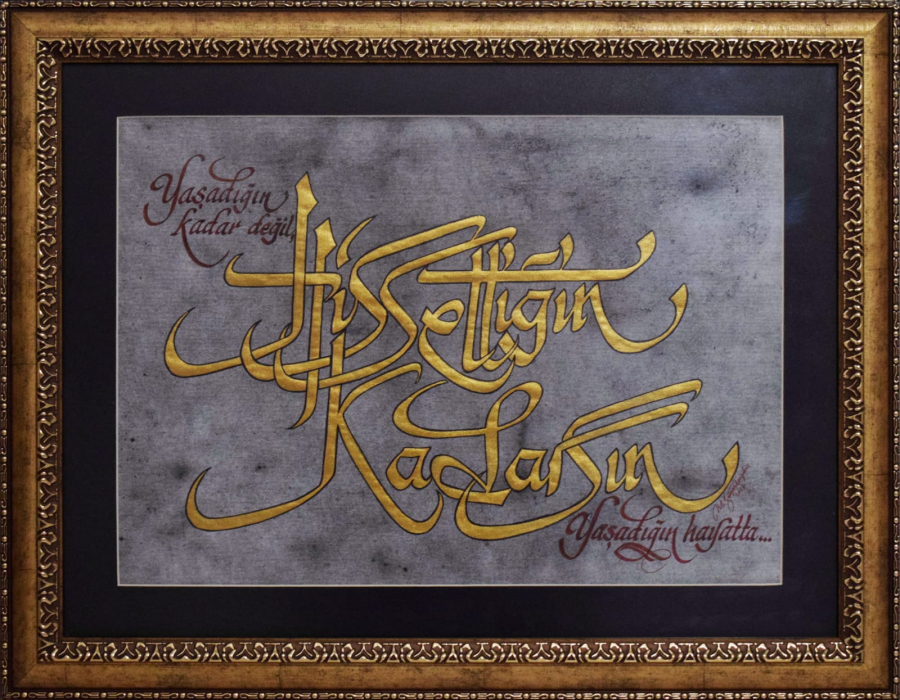 Yaşadığın
kadar değil,
Hissettiğin
Kadarsın
Yaşadığın hayatta...